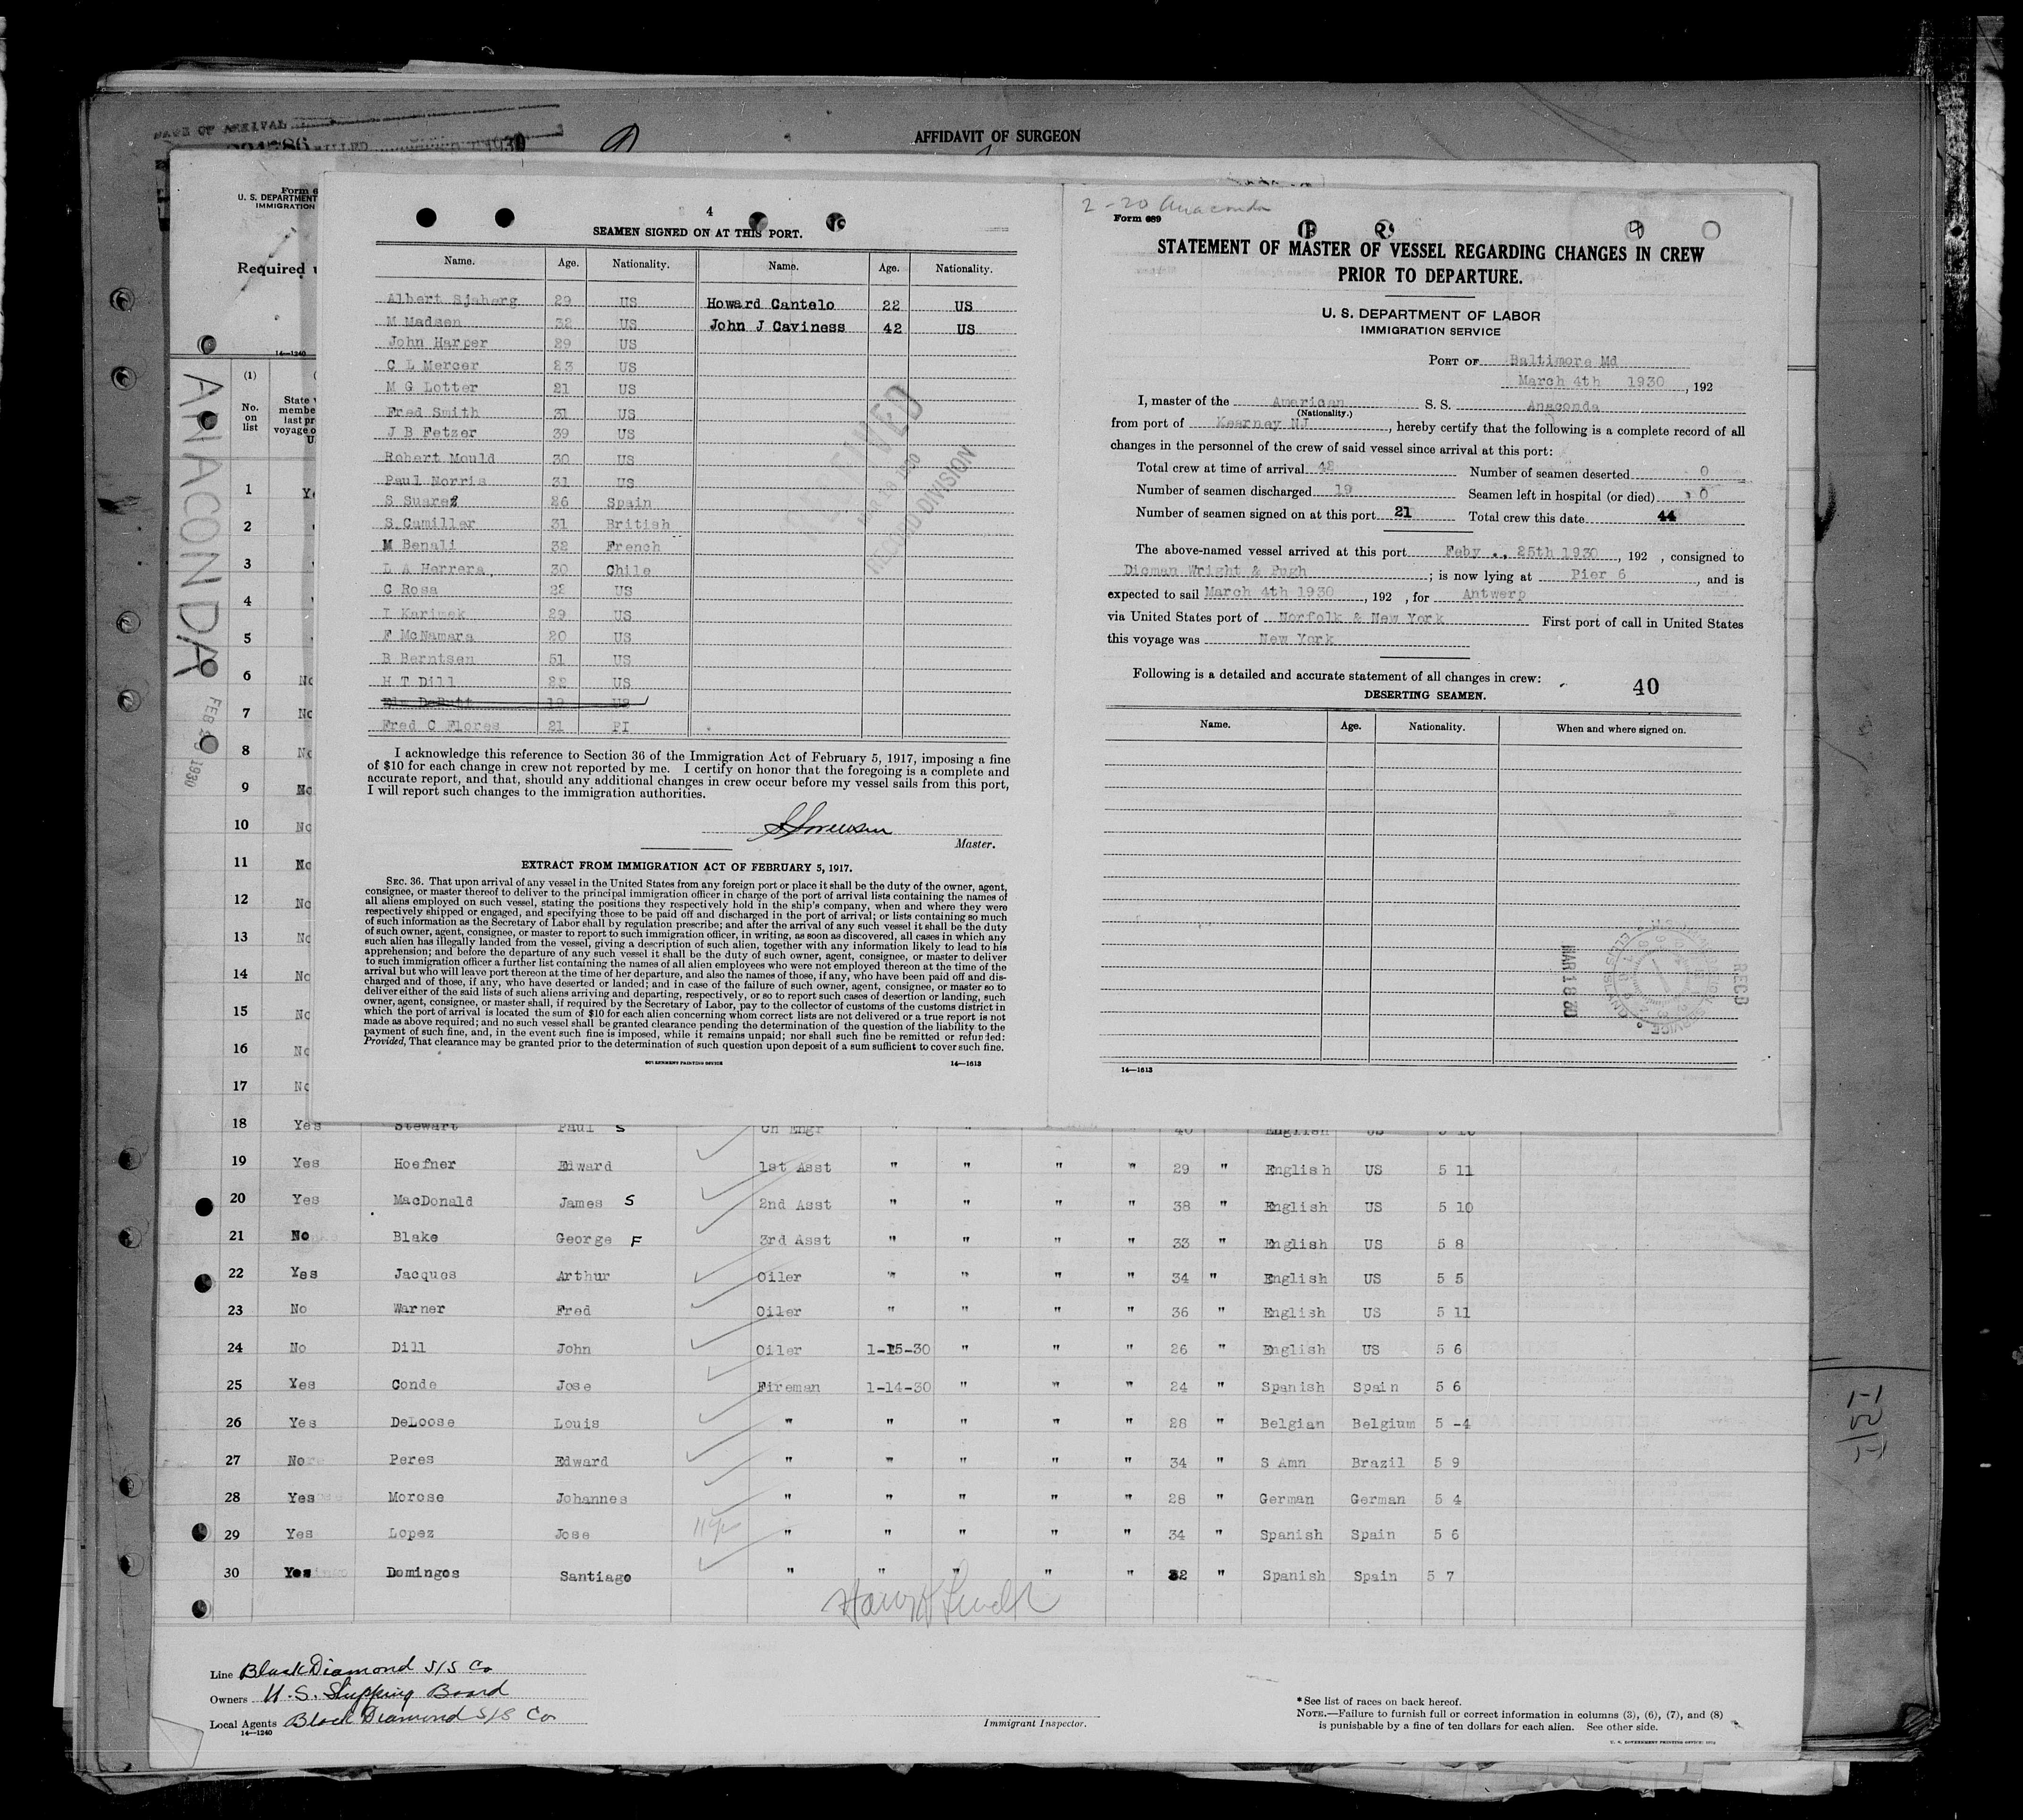 AFFIDAVIT OF SURGEON
DATE OF ARRIVAL
1930
Form 6
U. S. DEPARTMENT
IMMIGRATION
Required
14—1240
ANACONDA
FEB
1930
(1)
No. on list
State
membe
last pr
voyage o
U
4
SEAMEN SIGNED ON AT THIS PORT.
Name. Age. Nationality. Name. Age. Nationality.
Albert Sjaberg 29 US Howard Cantelo 22 US
M Madsen 32 US John J Caviness 42 US
John Harper 29 US
C L Mercer 23 US
M G Lotter 21 US
Fred Smith 31 US
J B Fetzer 39 US
Robert Mould 30 US
Paul Norris 31 US
S Suarez 26 Spain
S. Camiller 31 British
M Benali 32 French
L A Herrera, 30 Chile
C Rosa 22 US
I Karimek 29 US
F McNamara 20 US
B Berntsen 51 US
H T Dill 22 US
19 US
Fred C Flores 21 PI
RECEIVED
RECORD DIVISION
I acknowledge this reference to Section 36 of the Immigration Act of February 5, 1917, imposing a fine
of $10 for each change in crew not reported by me. I certify on honor that the foregoing is a complete and
accurate report, and that, should any additional changes in crew occur before my vessel sails from this port,
I will report such changes to the immigration authorities.
SSorensen
Master.
EXTRACT FROM IMMIGRATION ACT OF FEBRUARY 5, 1917.
SEC. 36. That upon arrival of any vessel in the United States from any foreign port or place it shall be the duty of the owner, agent,
consignee, or master thereof to deliver to the principal immigration officer in charge of the port of arrival lists containing the names of
all aliens employed on such vessel, stating the positions they respectively hold in the ship's company, when and where they were
respectively shipped or engaged, and specifying those to be paid off and discharged in the port of arrival; or lists containing so much
of such information as the Secretary of Labor shall by regulation prescribe; and after the arrival of any such vessel it shall be the duty
of such owner, agent, consignee, or master to report to such immigration officer, in writing, as soon as discovered, all cases in which any
such alien has illegally landed from the vessel, giving a description of such alien, together with any information likely to lead to his
apprehension; and before the departure of any such vessel it shall be the duty of such owner, agent, consignee, or master to deliver
to such immigration officer a further list containing the names of all alien employees who were not employed thereon at the time of the
arrival but who will leave port thereon at the time of her departure, and also the names of those, if any, who have been paid off and dis-
charged and of those, if any, who have deserted or landed; and in case of the failure of such owner, agent, consignee, or master so to
deliver either of the said lists of such aliens arriving and departing, respectively, or so to report such cases of desertion or landing, such
owner, agent, consignee, or master shall, if required by the Secretary of Labor, pay to the collector of customs of the customs district in
which the port of arrival is located the sum of $10 for each alien concerning whom correct lists are not delivered or a true report is not
made as above required; and no such vessel shall be granted clearance pending the determination of the question of the liability to the
payment of such fine, and, in the event such fine is imposed, while it remains unpaid; nor shall such fine be remitted or refunded:
Provided, That clearance may be granted prior to the determination of such question upon deposit of a sum sufficient to cover such fine.
GOVERNMENT PRINTING OFFICE 14—1613
2-20 Anaconda
Form 689
STATEMENT OF MASTER OF VESSEL REGARDING CHANGES IN CREW
PRIOR TO DEPARTURE.
U. S. DEPARTMENT OF LABOR
IMMIGRATION SERVICE
PORT OF Baltimore Md
March 4th 1930, 192
I, master of the American S. S. Anaconda
(Nationality.)
from port of Kearney NJ, hereby certify that the following is a complete record of all
changes in the personnel of the crew of said vessel since arrival at this port:
Total crew at time of arrival 42 Number of seamen deserted 0
Number of seamen discharged 19 Seamen left in hospital (or died) 0
Number of seamen signed on at this port 21 Total crew this date 44
The above-named vessel arrived at this port Feby .. 25th 1930, 192 , consigned to
Dicman Wright & Pugh ; is now lying at Pier 6, and is
expected to sail March 4th 1930, 192 , for Antwerp
via United States port of Norfolk & New York First port of call in United States
this voyage was New York
Following is a detailed and accurate statement of all changes in crew: 40
DESERTING SEAMEN.
Name. Age. Nationality. When and where signed on.
MAR 18 30
REC'D
14—1613
1 Ye
2
3
4
5
6 No
7 No
8 No
9 No
10 No
11 No
12 No
13 No
14 No
15 No
16 No
17 No
18 Yes Stewart Paul S Ch Engr " " " " 40 English US 5 10
19 Yes Hoefner Edward 1st Asst " " " " 29 " English US 5 11
20 Yes MacDonald James S 2nd Asst " " " " 38 " English US 5 10
21 No Blake George F 3rd Asst " " " " 33 " English US 5 8
22 Yes Jacques Arthur Oiler " " " " 34 " English US 5 5
23 No Warner Fred Oiler " " " " 36 " English US 5 11
24 No Dill John Oiler 1-15-30 " " " 26 " English US 5 6
25 Yes Conde Jose Fireman 1-14-30 " " " 24 " Spanish Spain 5 6
26 Yes DeLoose Louis " " " " " 28 " Belgian Belgium 5 -4
27 No Peres Edward " " " " " 34 " S Amn Brazil 5 9
28 Yes Morose Johannes " " " " " 28 " German German 5 4
29 Yes Lopez Jose " " " " " 34 " Spanish Spain 5 6
30 Yes Domingos Santiago " " " " " 32 " Spanish Spain 5 7
Line Black Diamond S/S Co
Owners U.S. Shipping Board
Local Agents Black Diamond S/S Co
14—1240
Immigrant Inspector.
*See list of races on back hereof.
NOTE.—Failure to furnish full or correct information in columns (3), (6), (7), and (8)
is punishable by a fine of ten dollars for each alien. See other side.